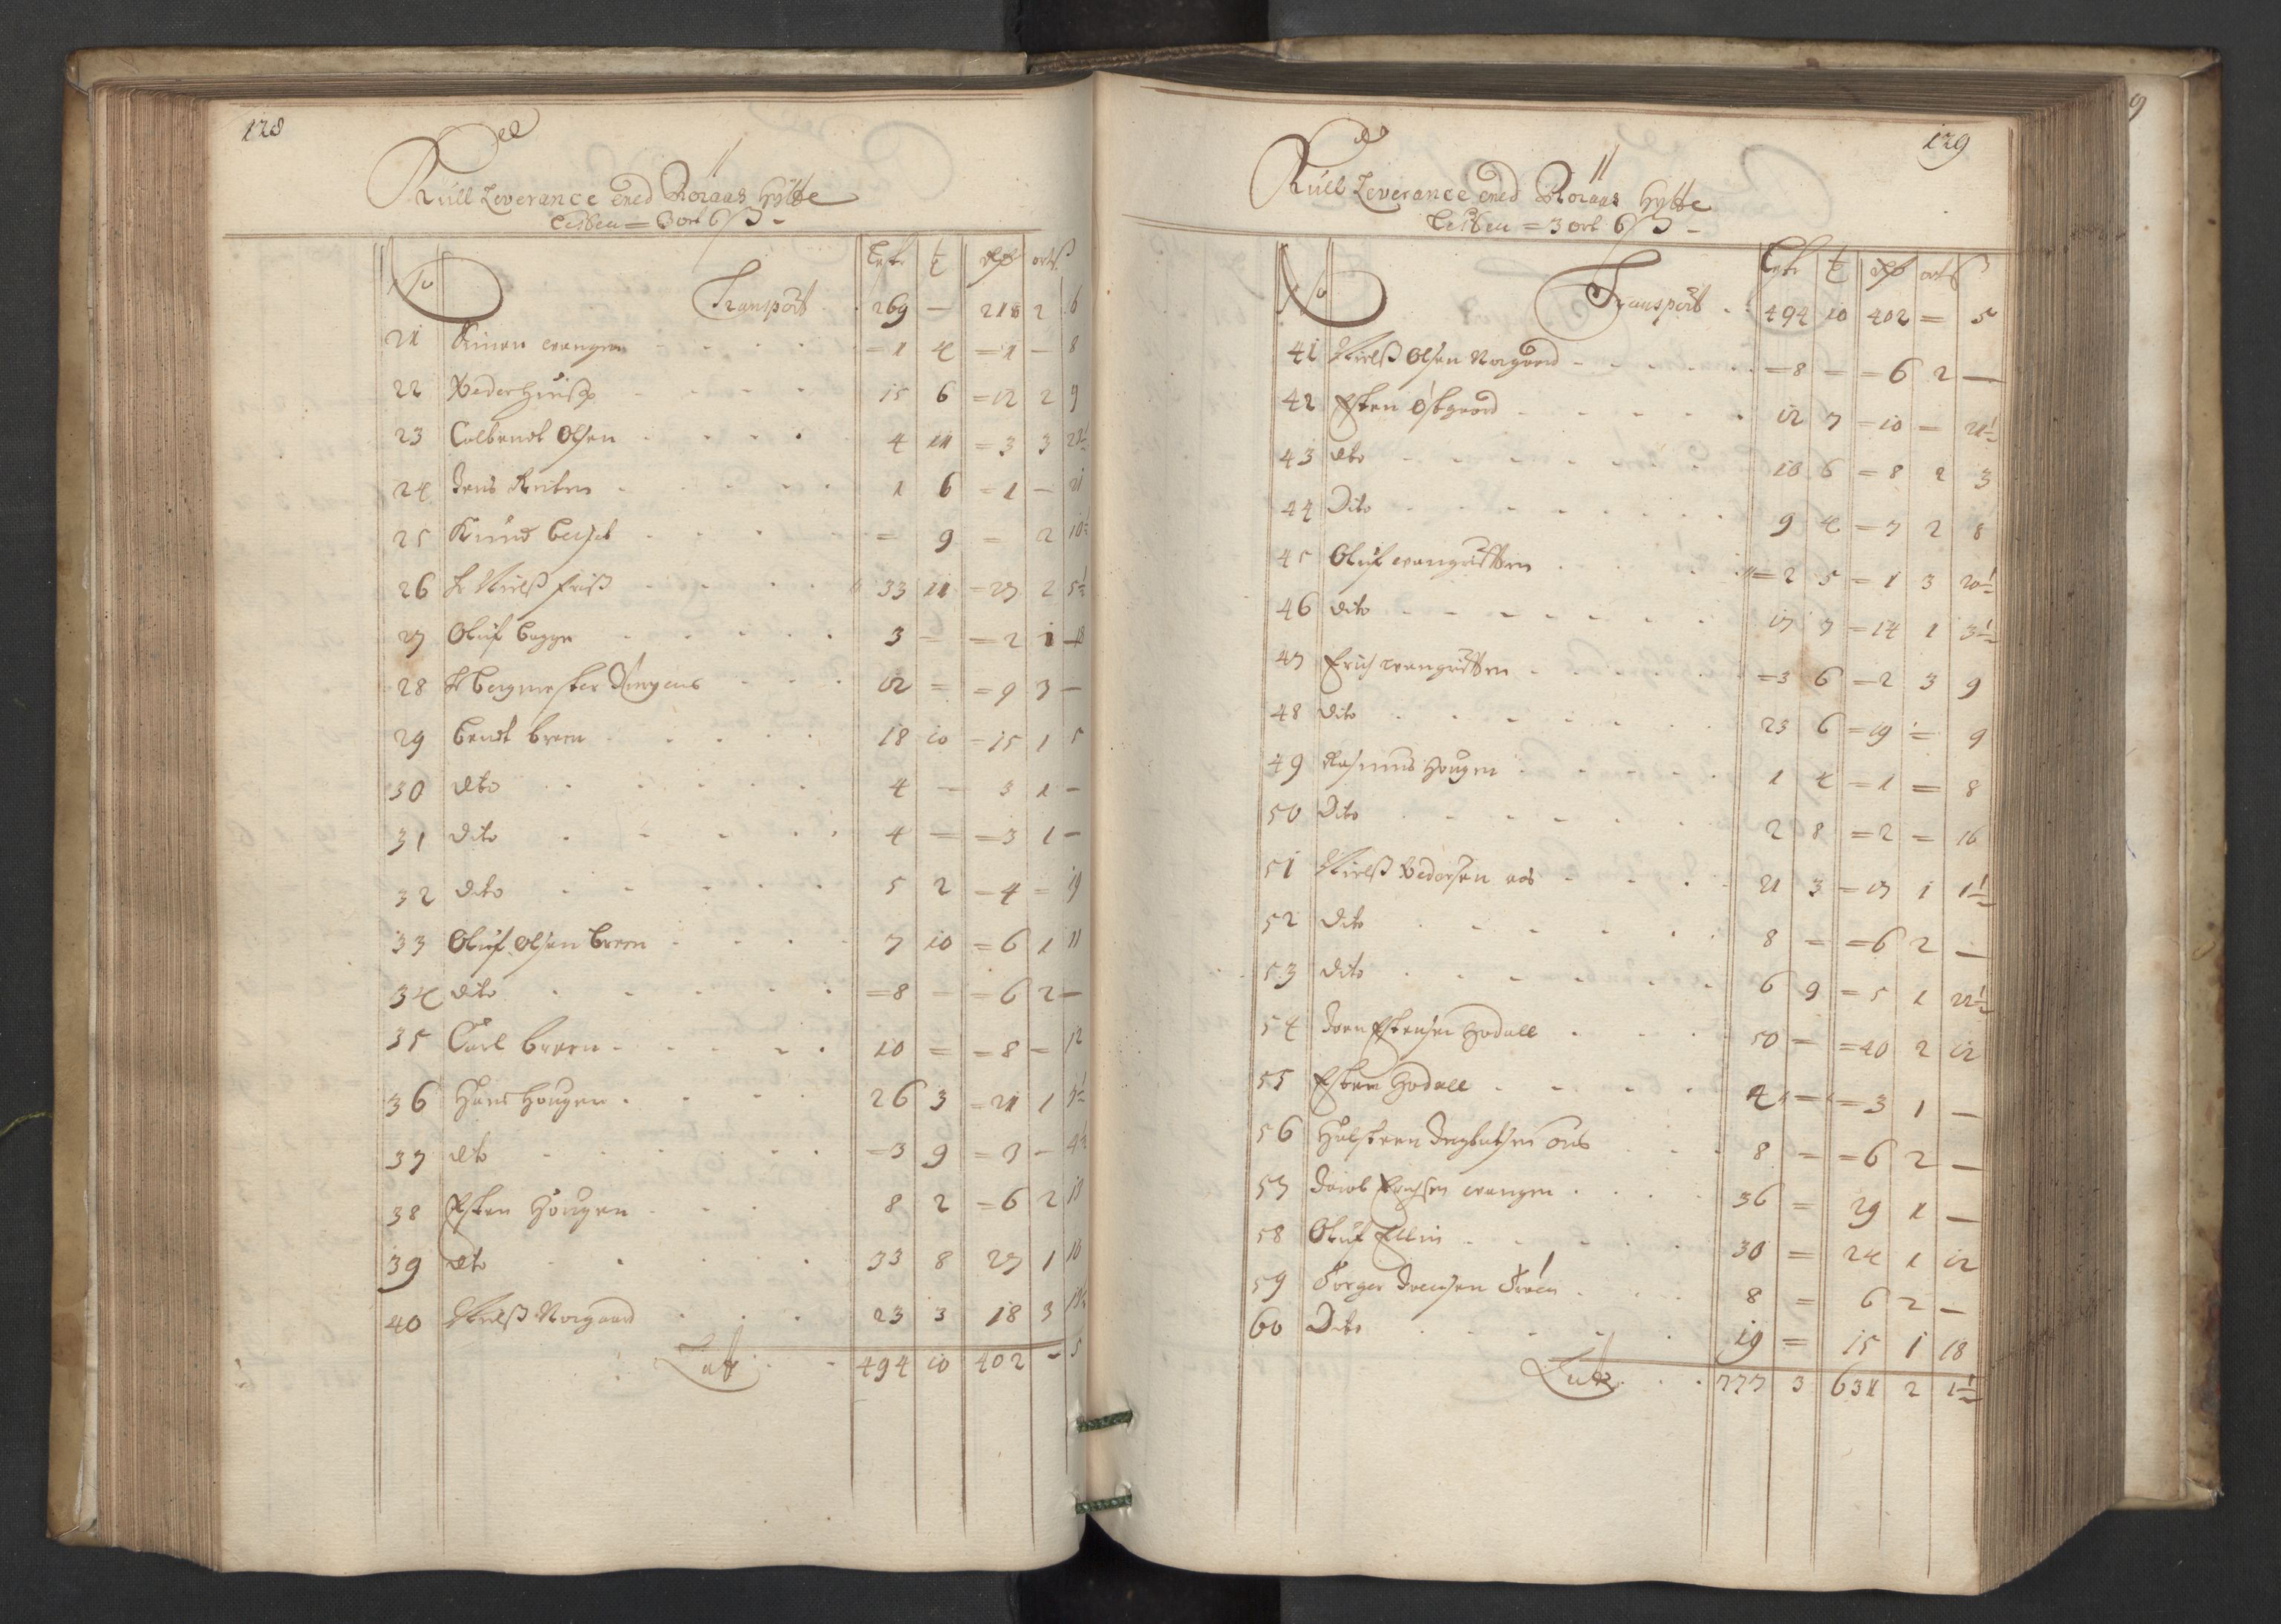 128
Kull Leverance ved Röraas Hÿtte
Lesten = 3 ort 6 ß -
No Lester t Rdr ort ß
Transport 269 — 218 2 6
21 Simen wangen = 1 4 = 1 — 8
22 Peder 15 6 = 12 2 9
23 Colbendt Olsen 4 11 = 3 3 22½
24 Jens Reiten 1 6 = 1 — 21
25 Knud = 9 = 2 10½
26 Hr Nielß Friß 33 11 = 27 2 5½
27 Oluf Bagge 3 = = 2 1 18
28 Hr Bergmester 12 = = 9 3 —
29 Bendt Breen 18 10 = 15 1 5
30 dto 4 — 3 1 —
31 Dito 4 = = 3 1 —
32 dito 5 2 = 4 = 19
33 Oluf Olsen Breen 7 10 = 6 1 11
34 dito = 8 — = 6 2 —
35 Carl Breen 10 = = 8 — 12
36 Hans Hougen 26 3 = 21 1 7½
37 dto = 3 9 = 3 — 4½
38 Esten Hougen 8 2 = 6 2 18
39 dto 33 8 27 1 10
40 Nielß Norgaard 23 3 18 3
Late 494 10 402 — 5
129
Kull Leverance ved Röraas Hytte
Lesten = 3 ort 6 ß -
No Lester t Rdr ort ß
Transport 494 10 402 = 5
41 Nielß Olsen Norgaard = 8 = = 6 2 —
42 Esten Østgaard 12 7 = 10 = 21½
43 dto 10 6 = 8 2 3
44 Dito 9 4 = 7 2 8
45 Oluf wangrøtten = 2 5 = 1 3 20½
46 dito 17 7 = 14 1 3½
47 Erich wangrøtten = 3 6 = 2 3 9
48 dito 23 6 = 19 = 9
49 Rasmus Hougen 1 4 = 1 = 8
50 Dito 2 8 = 2 = 16
51 Nielß Pedersen aas 21 3 = 17 1 1½
52 dito 8 = = 6 2 —
53 dito 6 9 = 5 1 22½
54 Joen Estensen Hodall 50 = = 40 2 12
55 Esten Hodall 4 = = 3 1 —
56 Halsteen 8 = = 6 2 —
57 Jacob Erichsen wangen 36 = 29 1 —
58 Oluf Ellin 30 = 24 1 12
59 Torger Joensen Troen 8 = 6 2 —
60 Dito 19 = 15 1 18
Late 777 3 631 2 1½